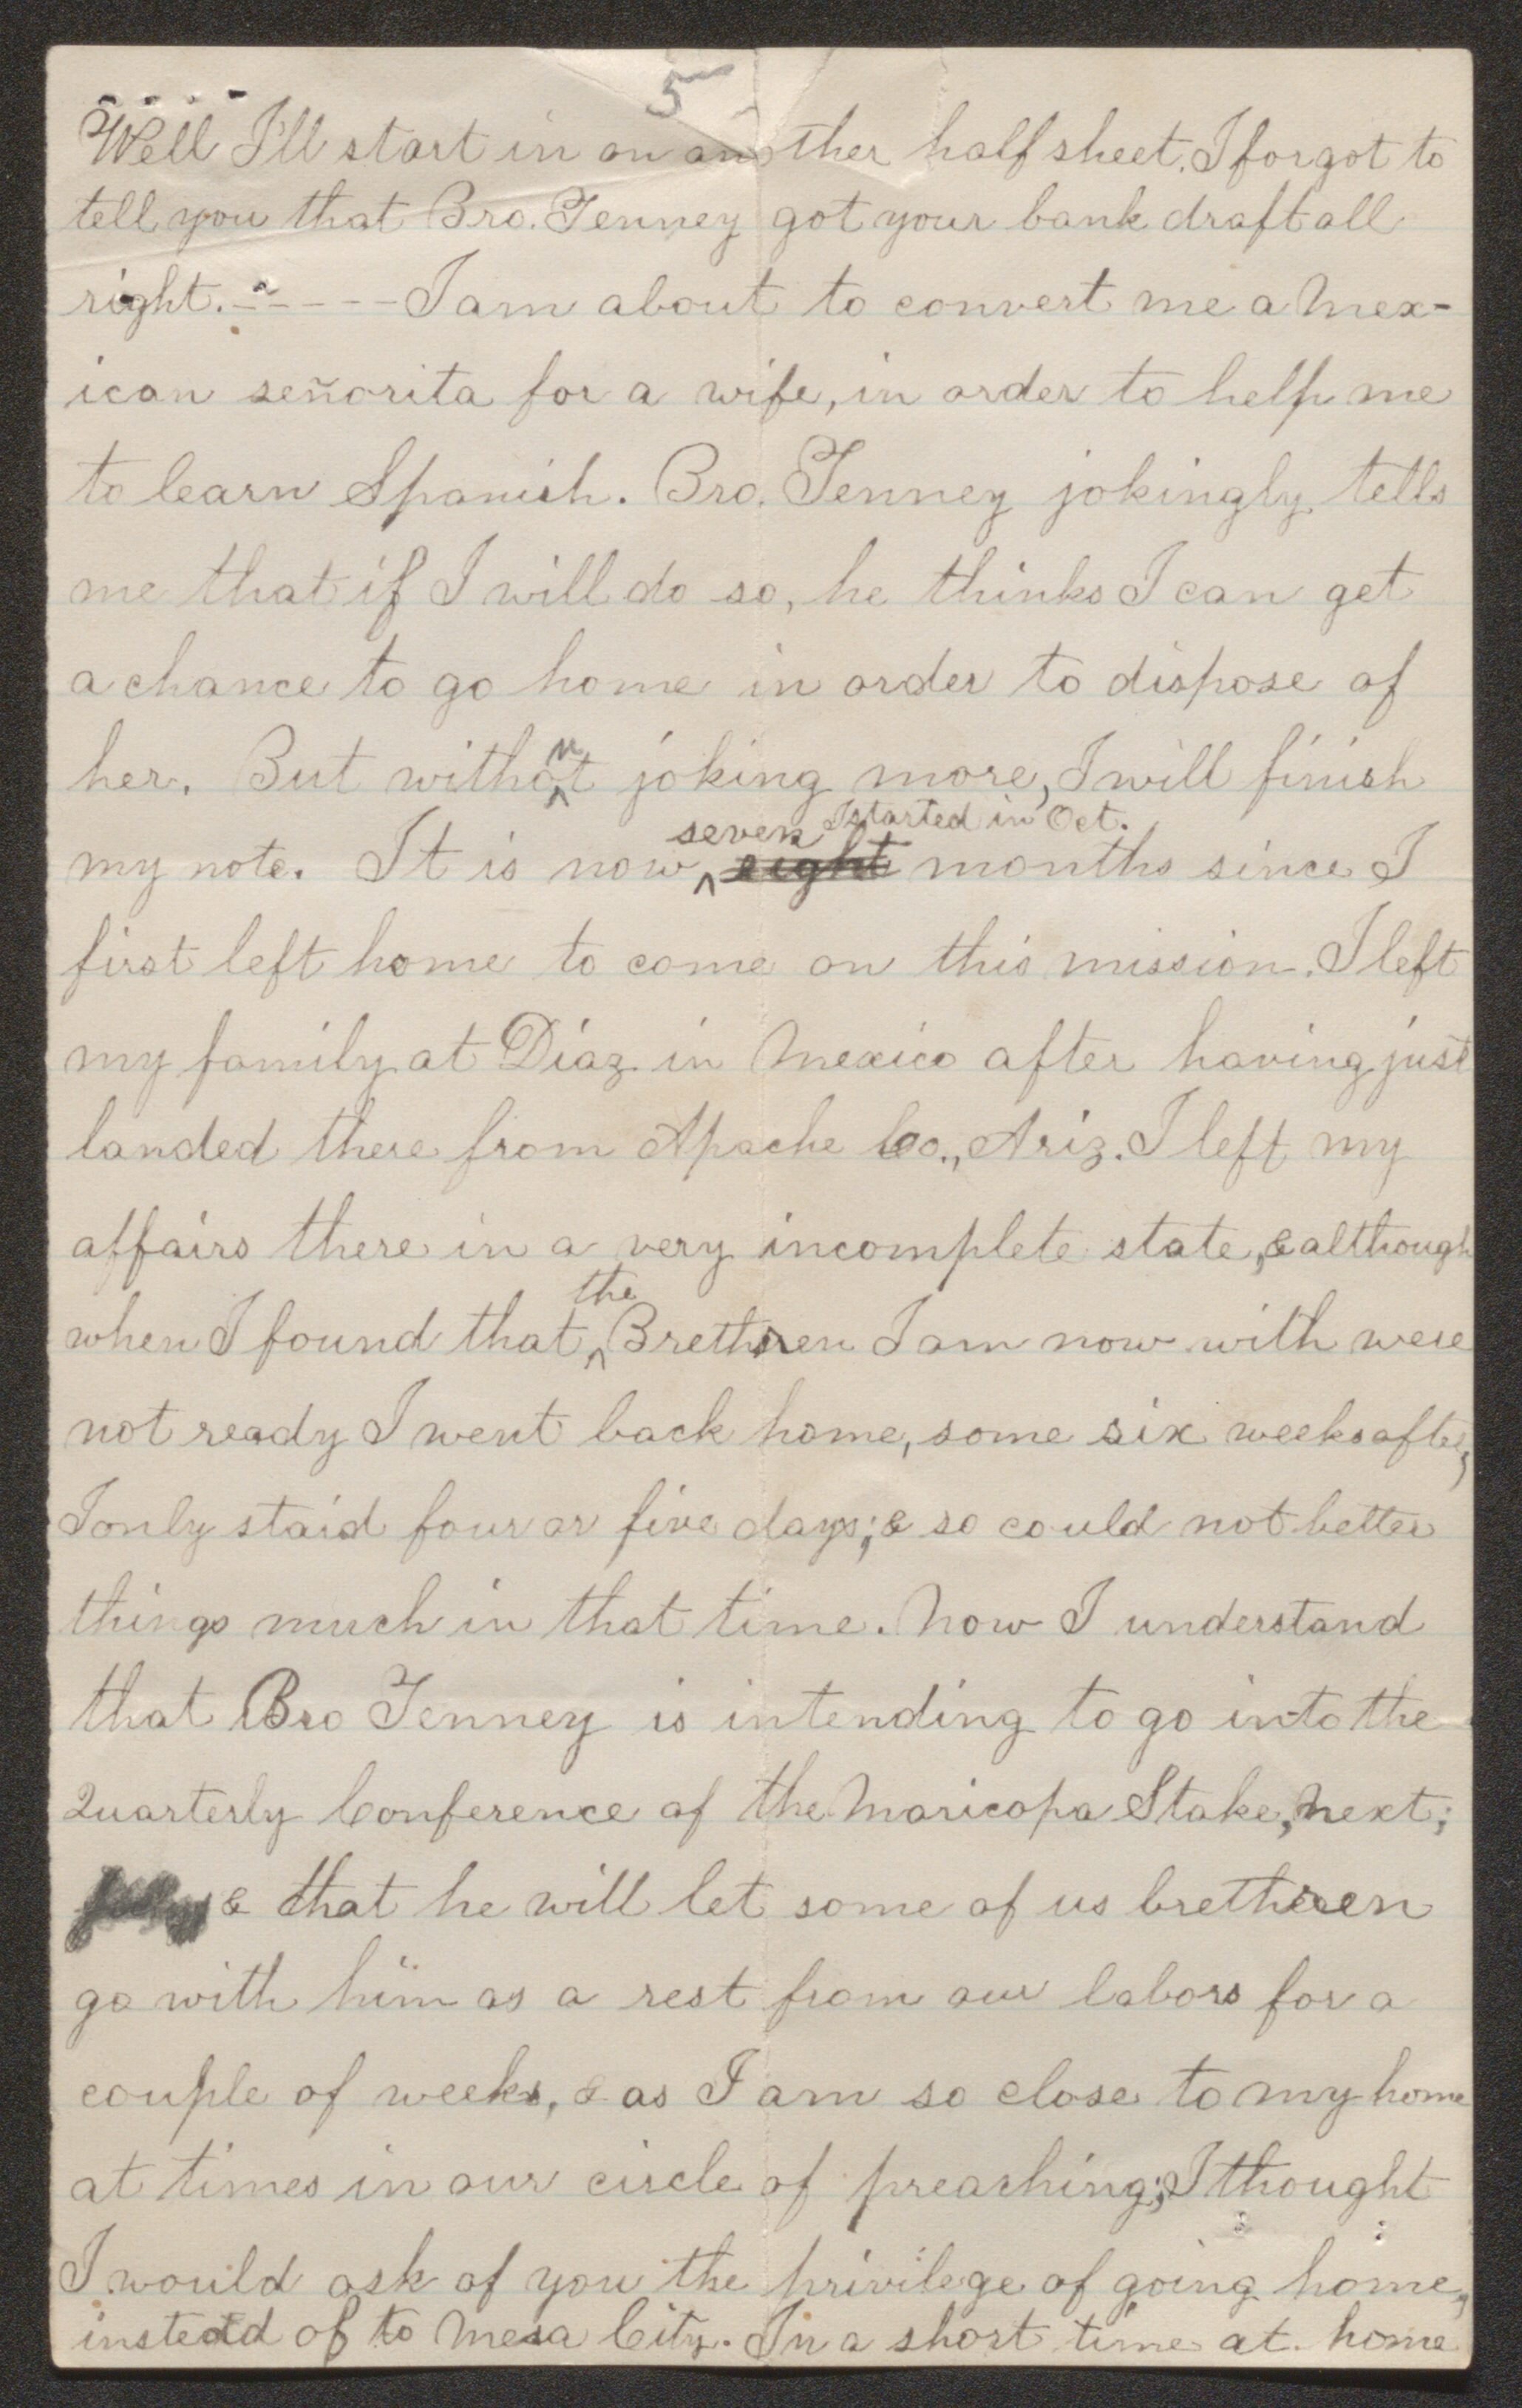 5
Well I'll start in on another half sheet. I forgot to
tell you that Bro. Tenney got your bank draft all
right.----- I am about to convert me a Mex-
ican señorita for a wife, in order to help me
to learn Spanish. Bro. Tenney jokingly tells
me that if I will do so, he thinks I can get
a chance to go home in order to dispose of
her. But without joking more, I will finish
seven I started in Oct.
my note. It is now eight months since I
first left home to come on this mission. I left
my family at Díaz in Mexico after having just
landed there from Apache Co., Ariz. I left my
affairs there in a very incomplete state, & although
the
when I found that Brethren I am now with were
not ready I went back home, some six weeks after,
I only staid four or five days; & so could not better
things much in that time. Now I understand
that Bro Tenney is intending to go into the
Quarterly Conference of the Maricopa Stake, next;
& that he will let some of us brethren
go with him as a rest from our labors for a
couple of weeks, & as I am so close to my home
at times in our circle of preaching; I thought
I would ask of you the privilege of going home,
instead of to Mesa City. In a short time at home